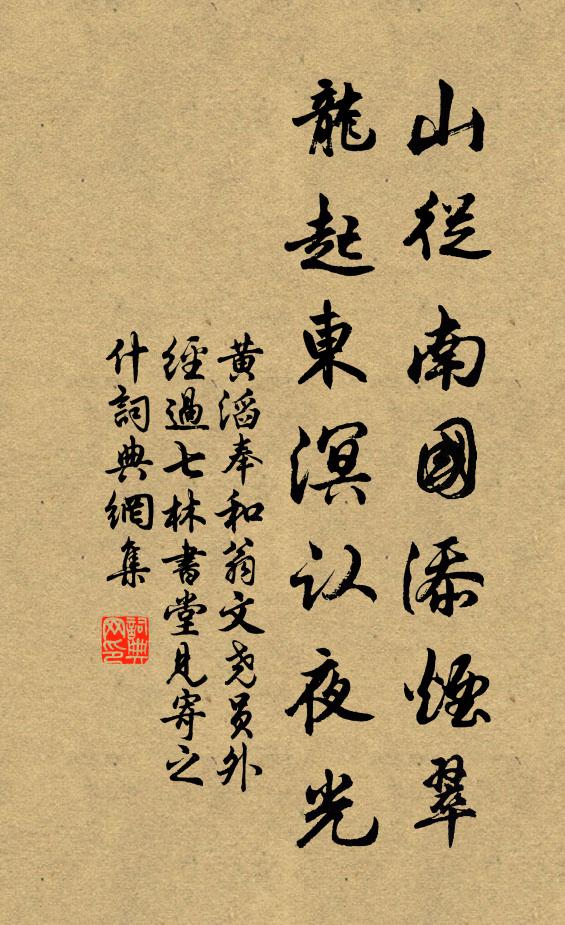 山從南國添煙翠
龍起東溟认夜光
黃滔奉和翁文尧员外
經過七林書堂見寄之
什詞典網集
詞典
网印